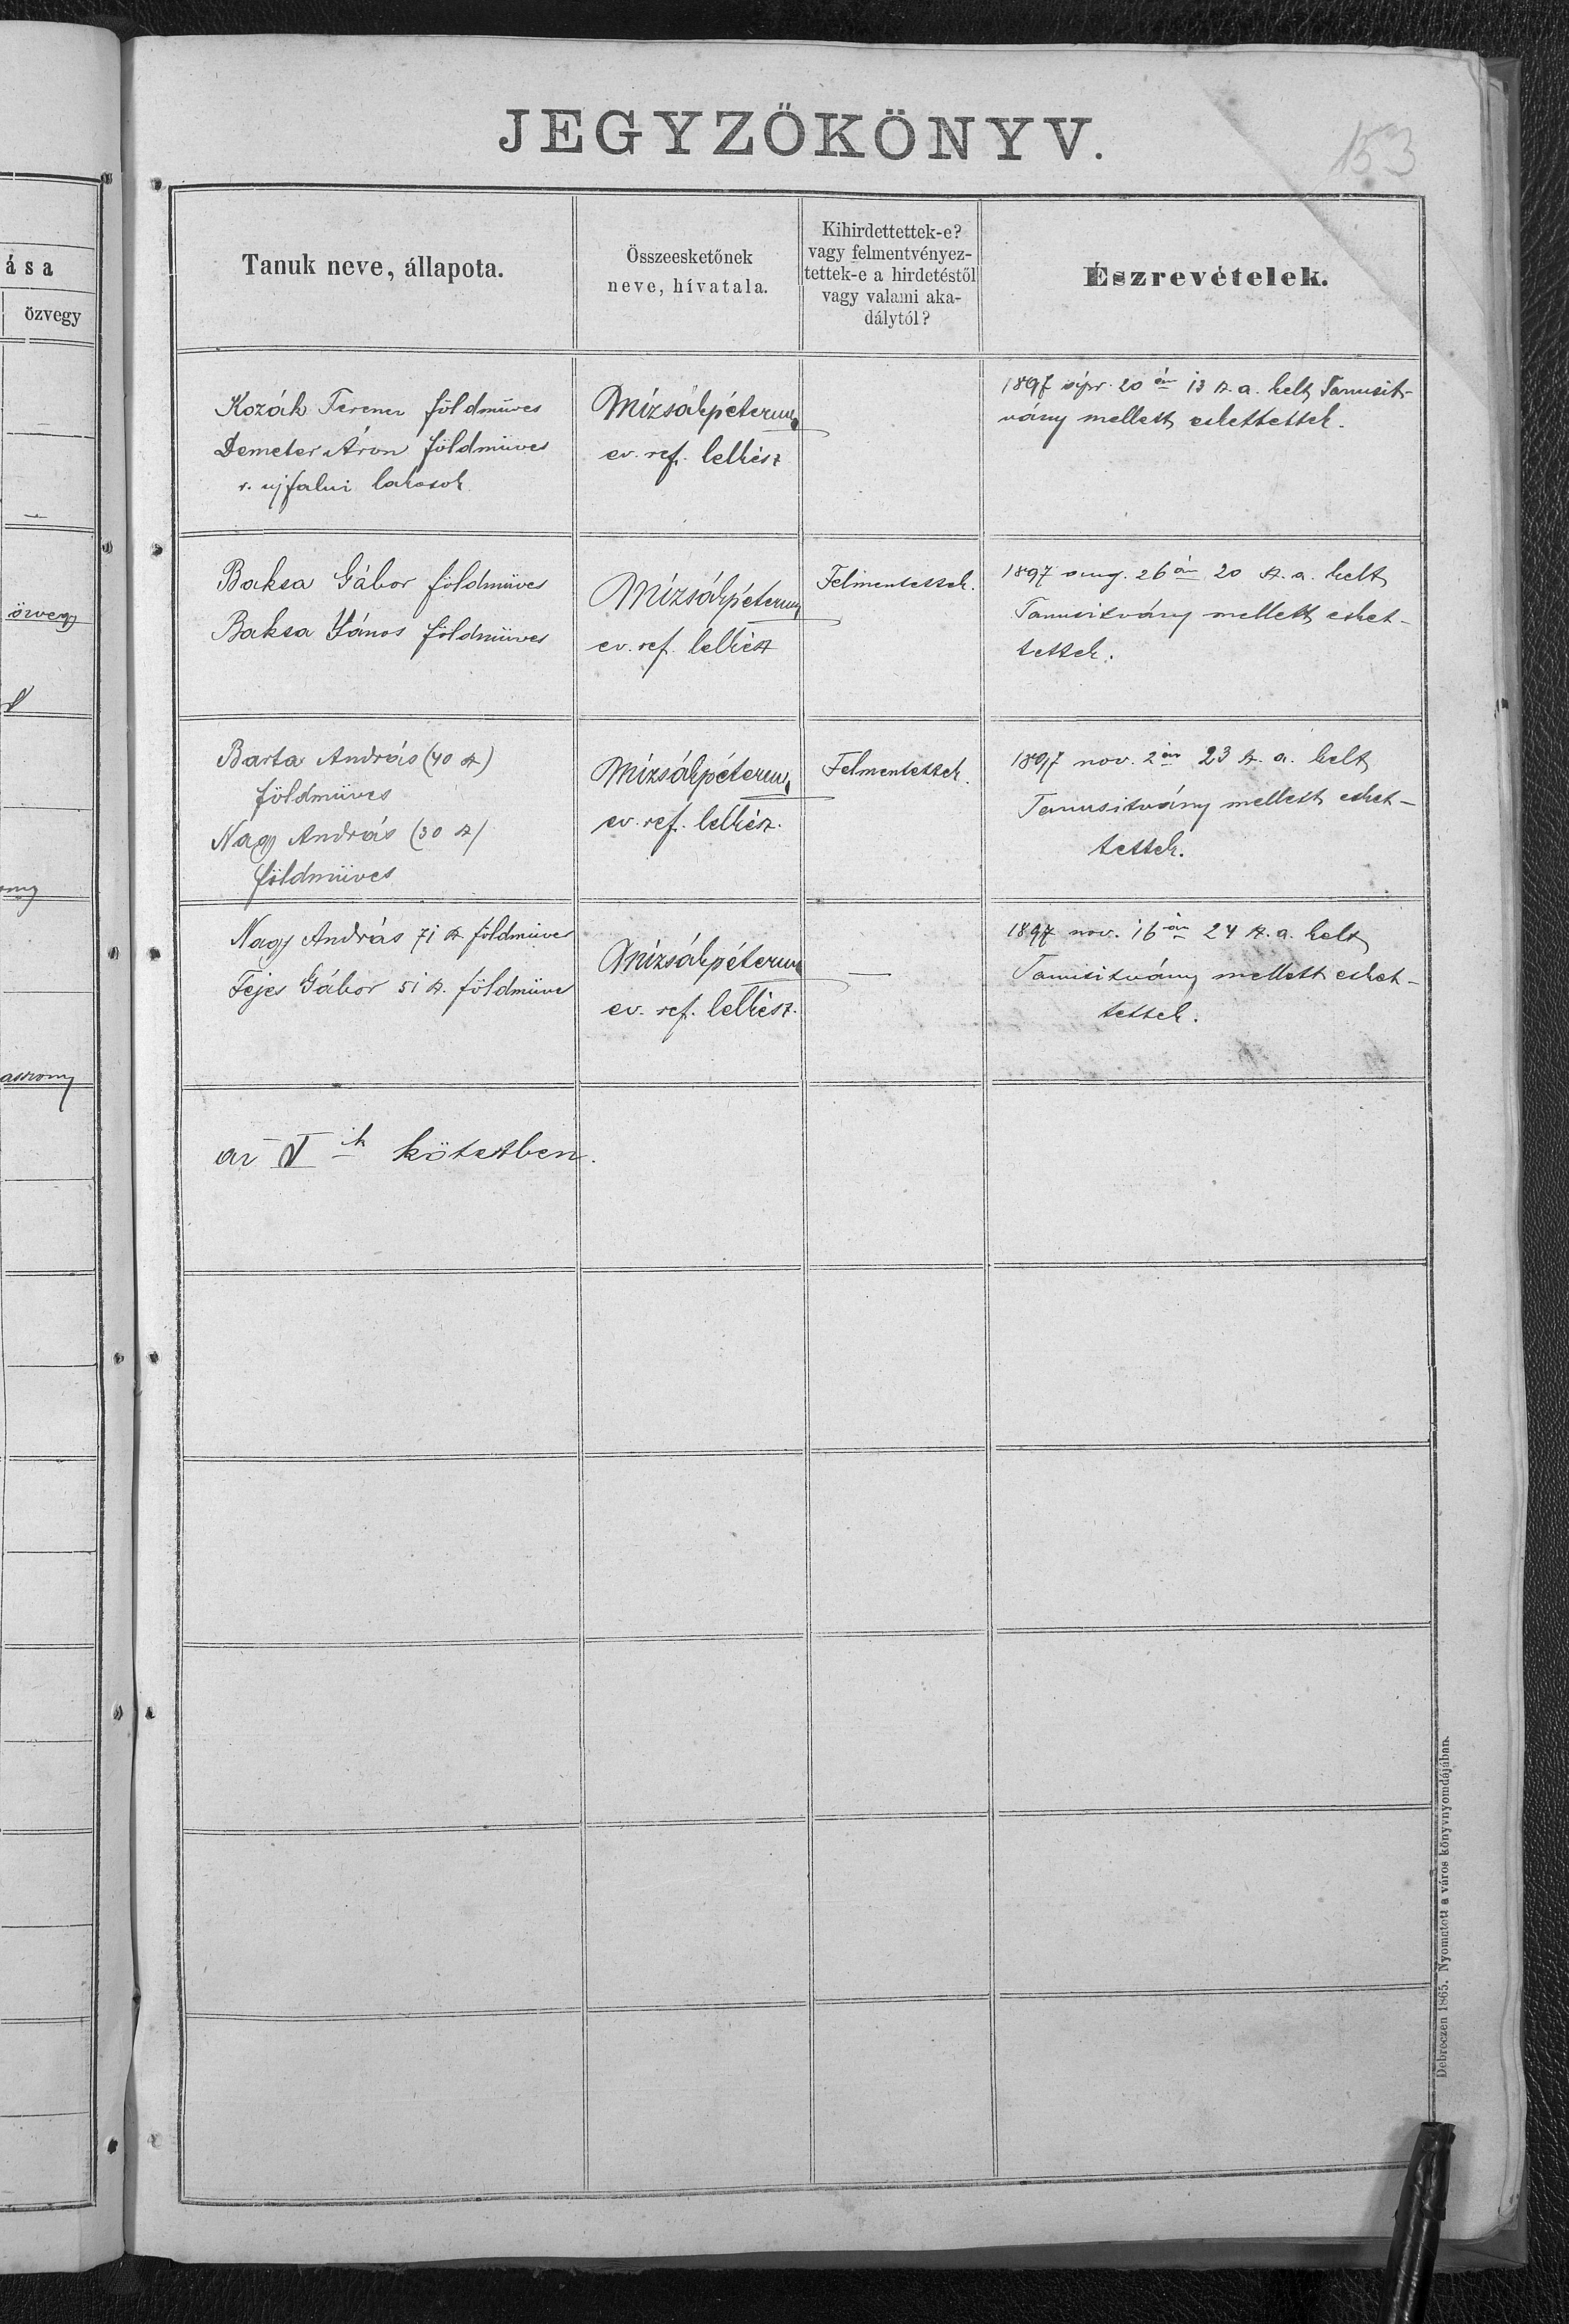 JEGYZŐKÖNYV.
153
ása
özvegy
özvegy
V
asszony
Tanuk neve, állapota.
Összeesketőnek
neve, hívatala.
Kihirdettettek-e?
vagy felmentvényez-
tettek-e a hirdetéstől
vagy valami aka-
dálytól?
Észrevételek.
Kozák Ferencz földmüves
Demeter Áron földmüves
r. ujfalui lakosok
ev. ref. lelkész
1897 ápr. 20 án 13 sz. a. kelt Tanusit-
vány mellett eskettettek.
Baksa Gábor földmüves
Baksa János földmüves
ev. ref. lelkész
Felmentettek.
1897 aug. 26 án 20 sz. a. kelt
Tanusitvány mellett esket-
tettek.
Barta András (40 sz)
földmüves
Nagy András (30 sz)
földmüves
ev. ref. lelkész.
Felmentettek.
1897 nov. 2 án 23 sz. a. kelt
Tanusitvány mellett esket-
tettek.
Nagy András 71 sz földmüves
Fejes Gábor 51 sz. földmüves
ev. ref. lelkész.
—
1897 nov. 16 án 24 sz. a. kelt
Tanusitvány mellett esket-
tettek.
az V ik kötetben.
Debreczen 1865. Nyomatott a város könyvnyomdájában.